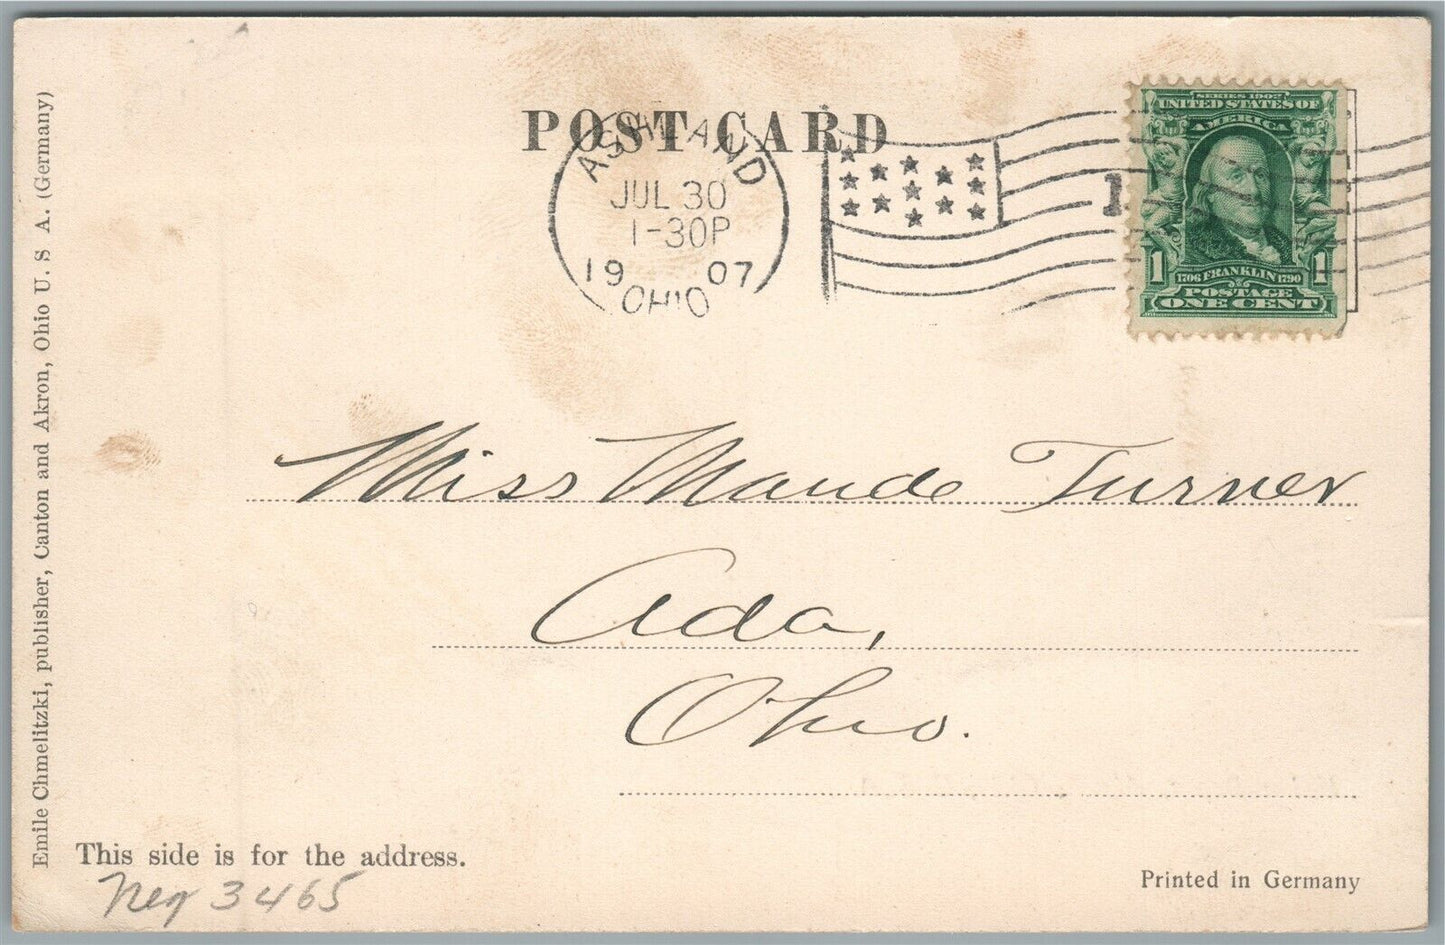 POST CARD
ASHLAND
JUL 30
1-30P
19 07
OHIO
1
SERIES 1902
UNITED STATES OF
AMERICA
1 1706 FRANKLIN 1790 1
POSTAGE
ONE CENT
Miss Maude Turner
Ada,
Ohio.
Emile Chmelitzki, publisher, Canton and Akron, Ohio U. S A. (Germany)
This side is for the address.
Neg 3465
Printed in Germany